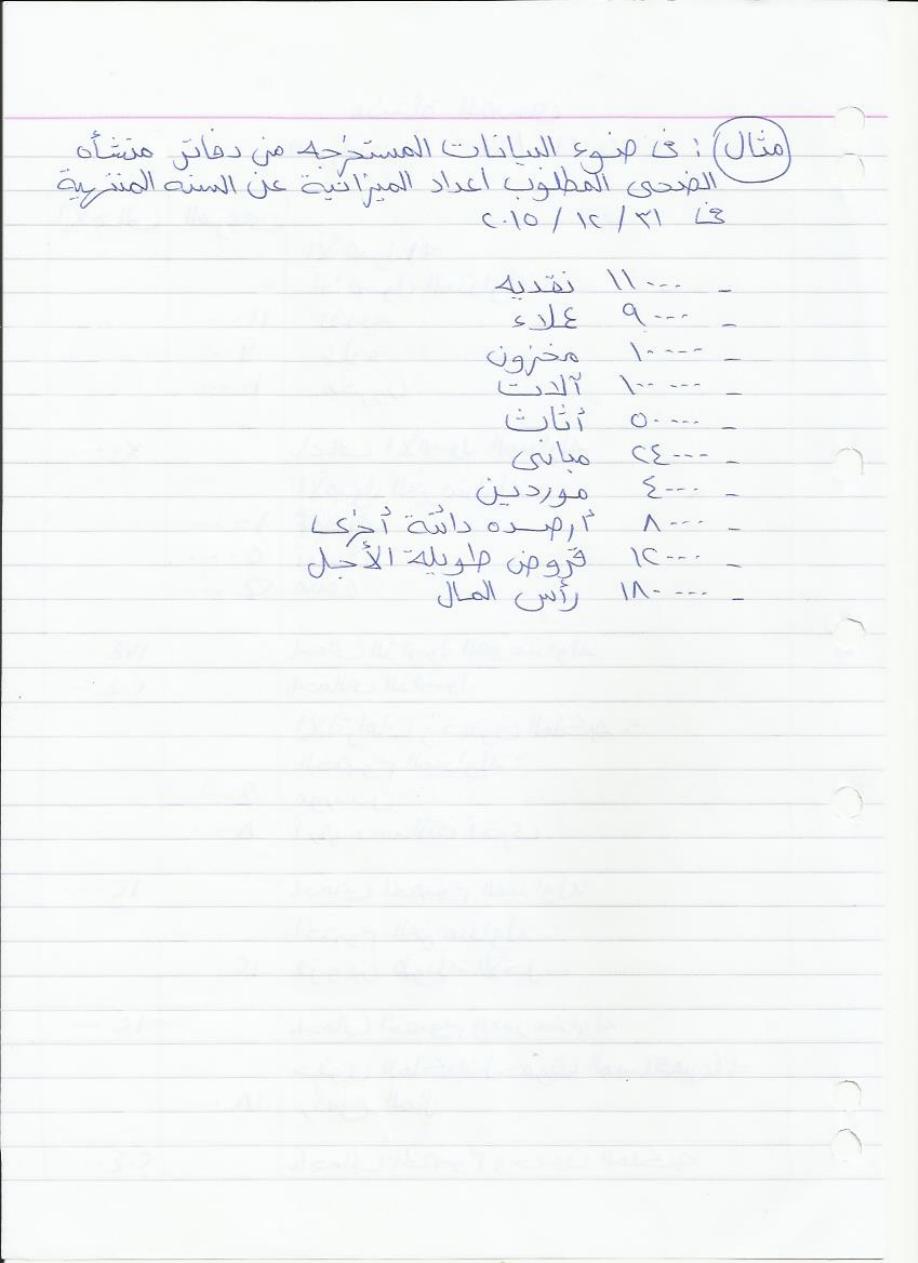 مثال : فى ضوء البيانات المستخرجه من دفاتر منشأه
الضحى المطلوب اعداد الميزانية عن السنه المنتهية
فى ٣١ / ١٢ / ٢٠١٥
- ١١٠٠٠ نقديه
- ٩٠٠٠ عملاء
- ١٠٠٠٠ مخزون
- ١٠٠٠٠٠ آلات
- ٥٠٠٠٠ أثاث
- ٢٤٠٠٠ مبانى
- ٤٠٠٠ موردين
- ٨٠٠٠ أرصده دائنة أخرى
- ١٢٠٠٠ قروض طويلة الأجل
- ١٨٠٠٠٠ رأس المال